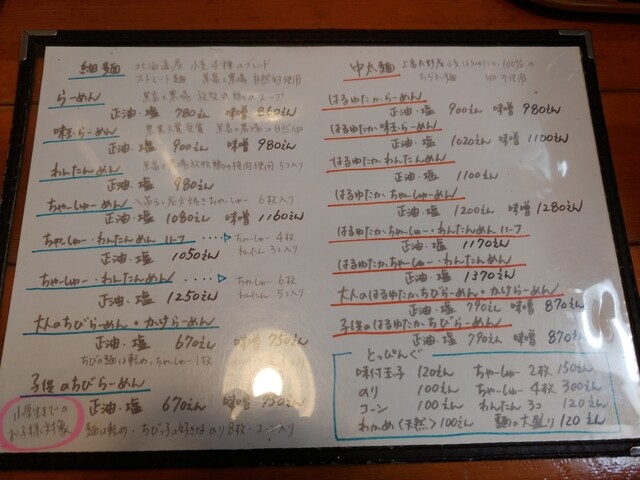 細麺 北海道産 小麦4種のブレンド
ストレート麺
らーめん
正油・塩 780えん 味噌 860えん
味玉らーめん
正油・塩 900えん 味噌 980えん
わんたんめん
正油・塩 980えん
ちゃーしゅーめん 6枚入り
正油・塩 1080えん 味噌 1160えん
ちゃーしゅー・わんたんめん ハーフ ・・・・▷ ちゃーしゅー 4枚
わんたん 3コ入り
正油・塩 1050えん
ちゃーしゅー・わんたんめん ・・・・▷ ちゃーしゅー 6枚
わんたん 5コ入り
正油・塩 1250えん
大人のちびらーめん・かけらーめん
正油・塩 670えん 味噌 750えん
ちびの麺は軽め、ちゃーしゅー1枚
子供のちびらーめん
正油・塩 670えん 味噌 750えん
小学生までの
お子様対象
麺は軽め・ちびっ子の好きな のり8枚・コーン入り
中太麺 上富良野産小麦はるゆたか100%の
ちぢれ麺
はるゆたからーめん
正油・塩 900えん 味噌 980えん
はるゆたか味玉らーめん
正油・塩 1020えん 味噌 1100えん
はるゆたかわんたんめん
正油・塩 1100えん
はるゆたかちゃーしゅーめん
正油・塩 1200えん 味噌 1280えん
はるゆたかちゃーしゅー・わんたんめん ハーフ
正油・塩 1170えん
はるゆたかちゃーしゅー・わんたんめん
正油・塩 1370えん
大人のはるゆたかちびらーめん・かけらーめん
正油・塩 790えん 味噌 870えん
子供のはるゆたかちびらーめん
正油・塩 790えん 味噌 870えん
とっぴんぐ
味付玉子 120えん ちゃーしゅー 2枚 150えん
のり 100えん ちゃーしゅー 4枚 300えん
コーン 100えん わんたん 3コ 120えん
わかめ(天然) 100えん 麺の大盛り 120えん